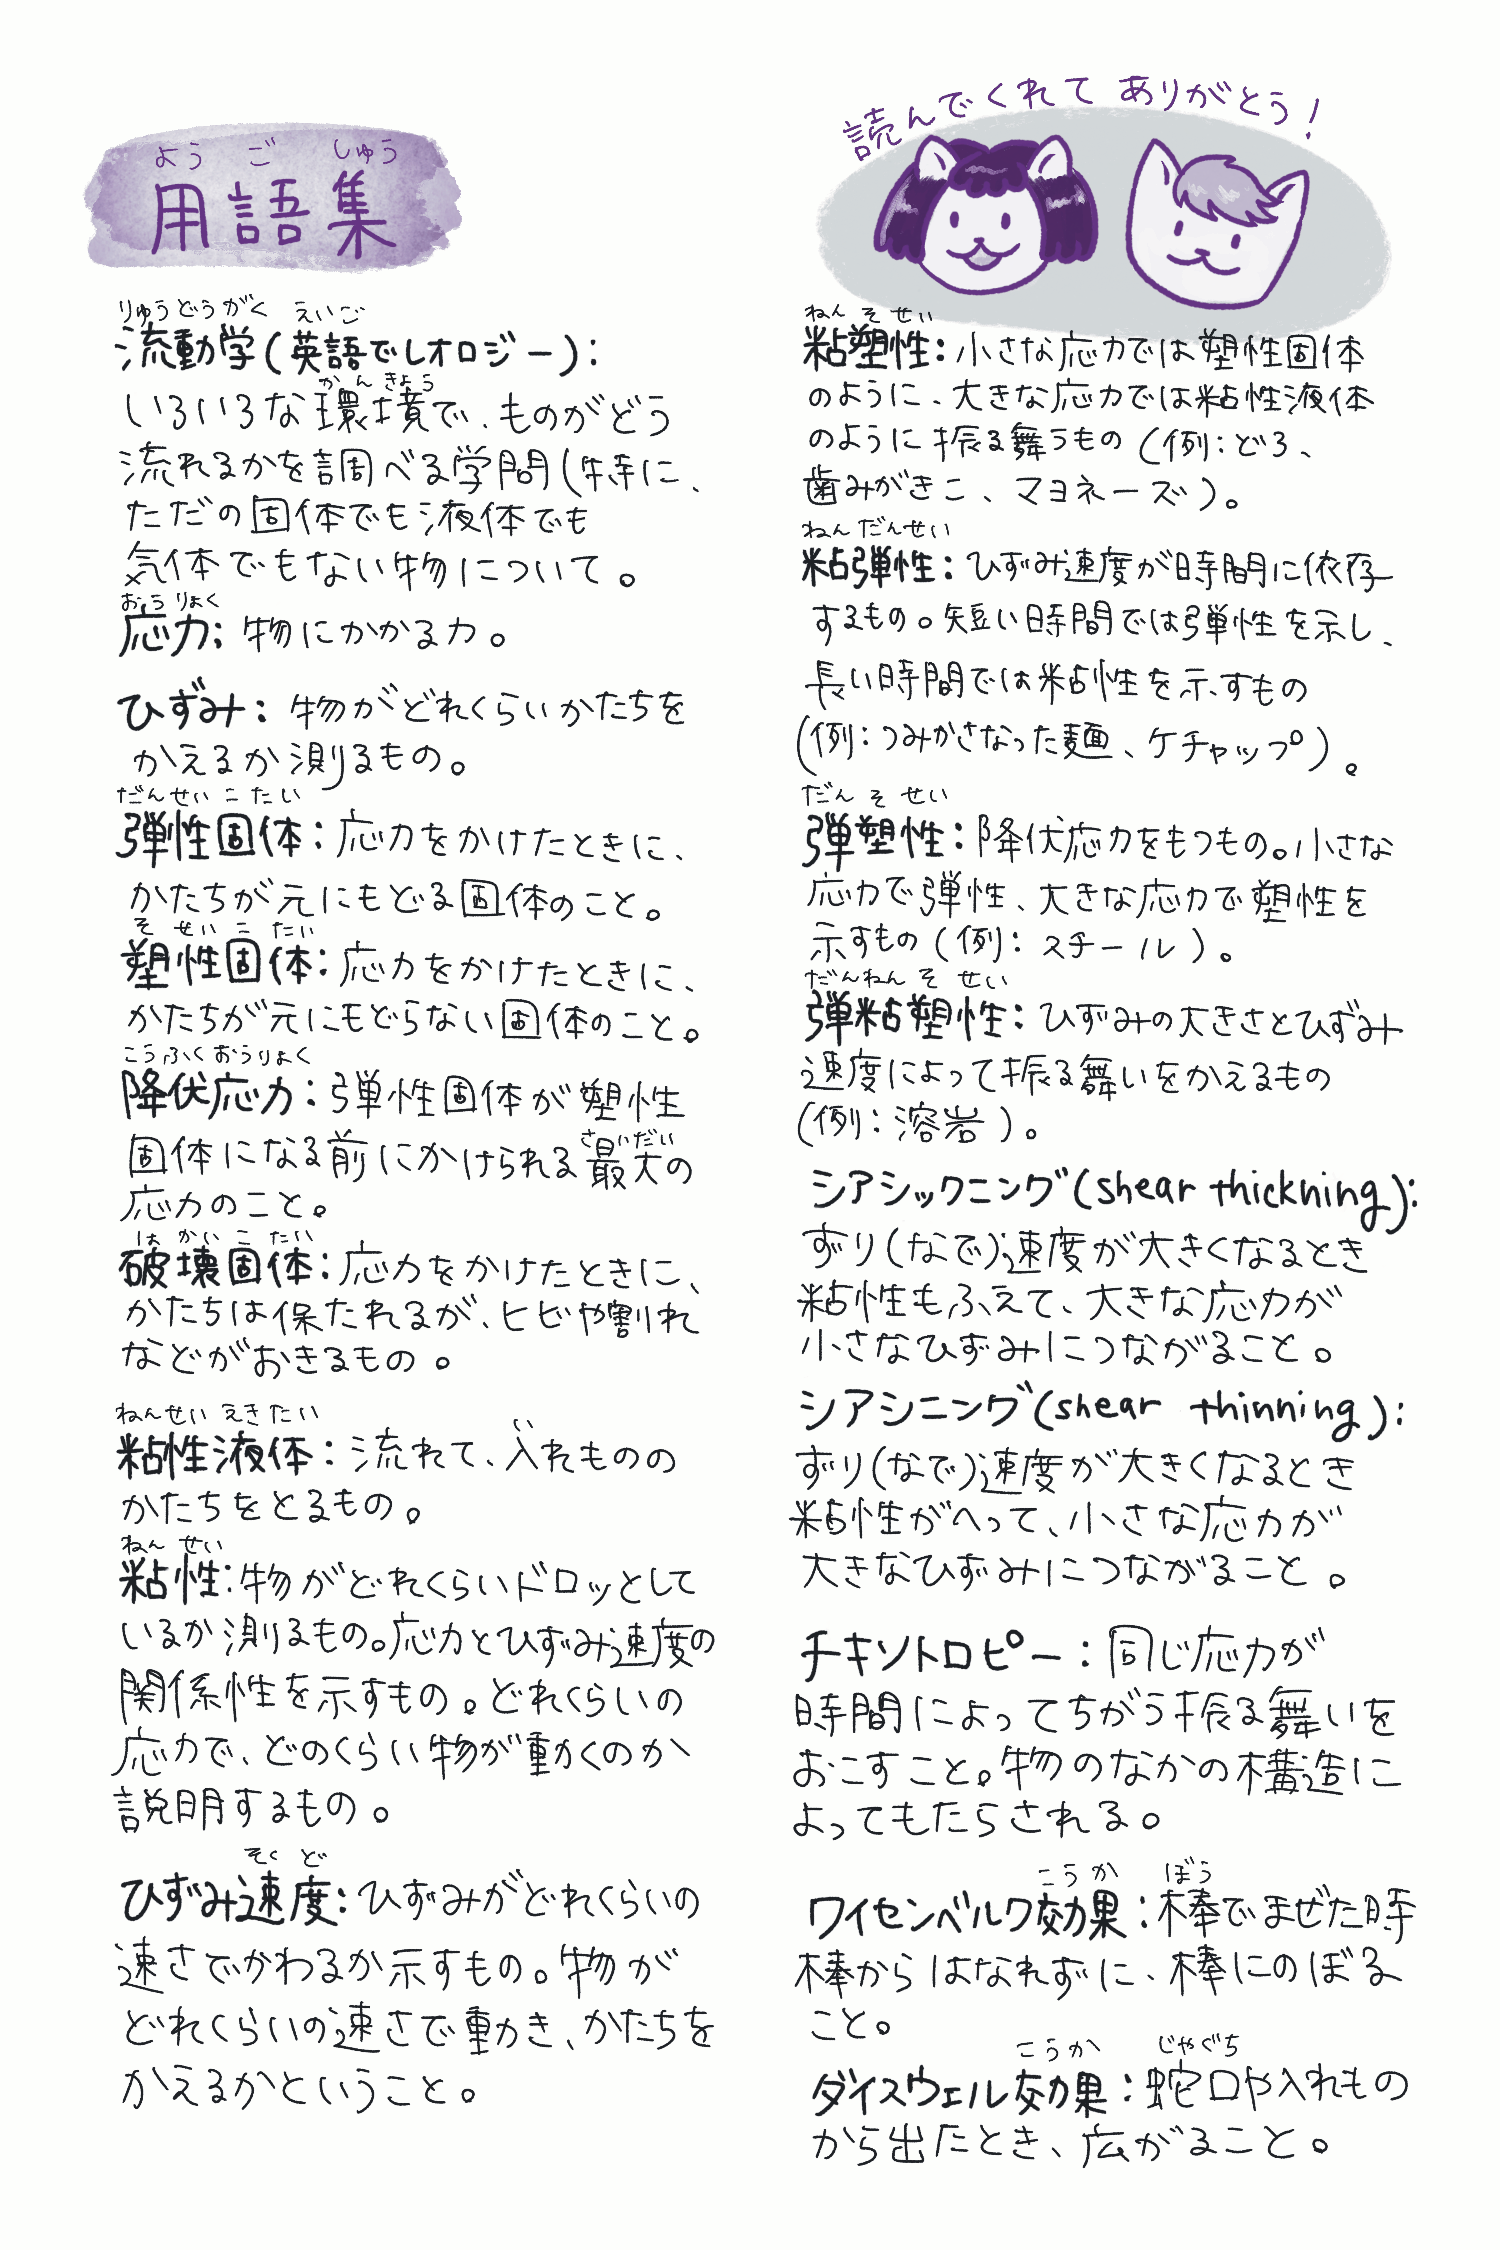 ようごしゅう
用語集
りゅうどうがく えいご
流動学(英語でレオロジー):
かんきょう
いろいろな環境で、ものがどう
流れるかを調べる学問(特に、
ただの固体でも液体でも
気体でもない物について。
おうりょく
応力: 物にかかる力。
ひずみ: 物がどれくらいかたちを
かえるか測るもの。
だんせいこたい
弾性固体: 応力をかけたときに、
かたちが元にもどる固体のこと。
そせいこたい
塑性固体: 応力をかけたときに、
かたちが元にもどらない固体のこと。
こうふくおうりょく
降伏応力: 弾性固体が塑性
さいだい
固体になる前にかけられる最大の
応力のこと。
はかいこたい
破壊固体: 応力をかけたときに、
かたちは保たれるが、ヒビや割れ
などがおきるもの。
ねんせいえきたい
い
粘性液体: 流れて、入れものの
かたちをとるもの。
ねんせい
粘性: 物がどれくらいドロッとして
いるか測るもの。応力とひずみ速度の
関係性を示すもの。どれくらいの
応力で、どのくらい物が動くのか
説明するもの。
そくど
ひずみ速度: ひずみがどれくらいの
速さでかわるか示すもの。物が
どれくらいの速さで動き、かたちを
かえるかということ。
読んでくれてありがとう!
ねんそせい
粘塑性: 小さな応力では塑性固体
のように、大きな応力では粘性液体
のように振る舞うもの(例:どろ、
歯みがきこ、マヨネーズ)。
ねんだんせい
粘弾性: ひずみ速度が時間に依存
するもの。短い時間では弾性を示し、
長い時間では粘性を示すもの
(例:つみかさなった麺、ケチャップ)。
だんそせい
弾塑性: 降伏応力をもつもの。小さな
応力で弾性、大きな応力で塑性を
示すもの(例:スチール)。
だんねんそせい
弾粘塑性: ひずみの大きさとひずみ
速度によって振る舞いをかえるもの
(例:溶岩)。
シアシックニング(shear thickning):
ずり(なで)速度が大きくなるとき
粘性もふえて、大きな応力が
小さなひずみにつながること。
シアシニング(shear thinning):
ずり(なで)速度が大きくなるとき
粘性がへって、小さな応力が
大きなひずみにつながること。
チキソトロピー: 同じ応力が
時間によってちがう振る舞いを
おこすこと。物のなかの構造に
よってもたらされる。
こうか ぼう
ワイセンベルク効果: 棒でまぜた時
棒からはなれずに、棒にのぼる
こと。
こうか じゃぐち
ダイスウェル効果: 蛇口や入れもの
から出たとき、広がること。